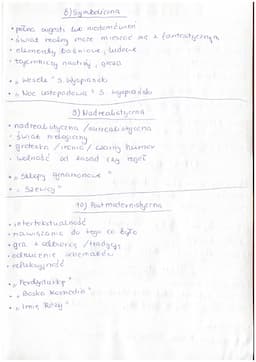 8) Symboliczna
• pełna sugestii lub niedomówień
• świat realny może mieszać się z fantastycznym
• elementy baśniowe, ludowe
• tajemniczy nastrój, groza
• „Wesele" S. Wyspiański
• „Noc listopadowa" S. Wyspiański
9) Nadrealistyczna
• nadrealistyczna / surrealistyczna
• świat nielogiczny
• groteska / ironia / czarny humor
• wolność od zasad czy reguł
• „Sklepy cynamonowe"
• „Szewcy"
10) Postmodernistyczna
• intertekstualność
• nawiązania do tego co było
• gra z odbiorcą / tradycją
• odrzucenie schematów
• refleksyjność
• „Ferdydurke"
• „Boska Komedia"
• „Imię Róży"